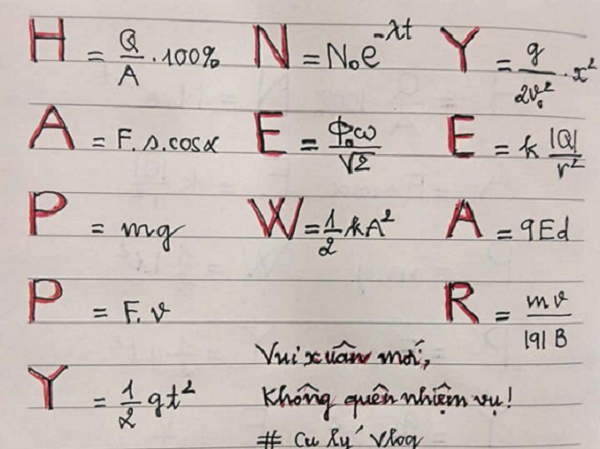 H = Q/A · 100%   N = N₀e^-λt   Y = g/2v₀² · x²
A = F.s.cosα   E = ϕ₀ω/√2   E = k |Q|/r²
P = mg   W = 1/2 kA²   A = qEd
P = F.v   R = mv/|q|B
Y = 1/2 gt²
Vui xuân mới,
Không quên nhiệm vụ!
# Cu lý Vlog